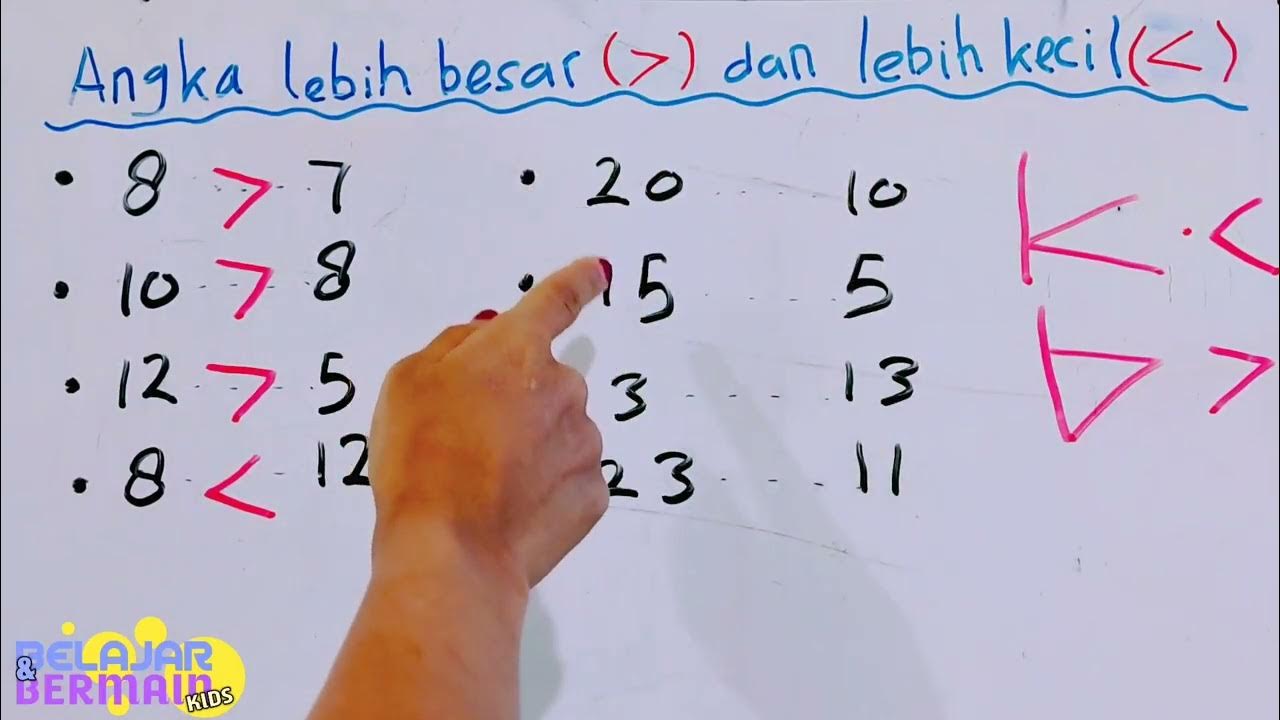 Angka lebih besar (>) dan lebih kecil (<)
• 8 > 7
• 10 > 8
• 12 > 5
• 8 < 12
• 20 ..... 10
• 15 ..... 5
3 ..... 13
23 ..... 11
K • <
b >
BELAJAR
& BERMAIN
KIDS